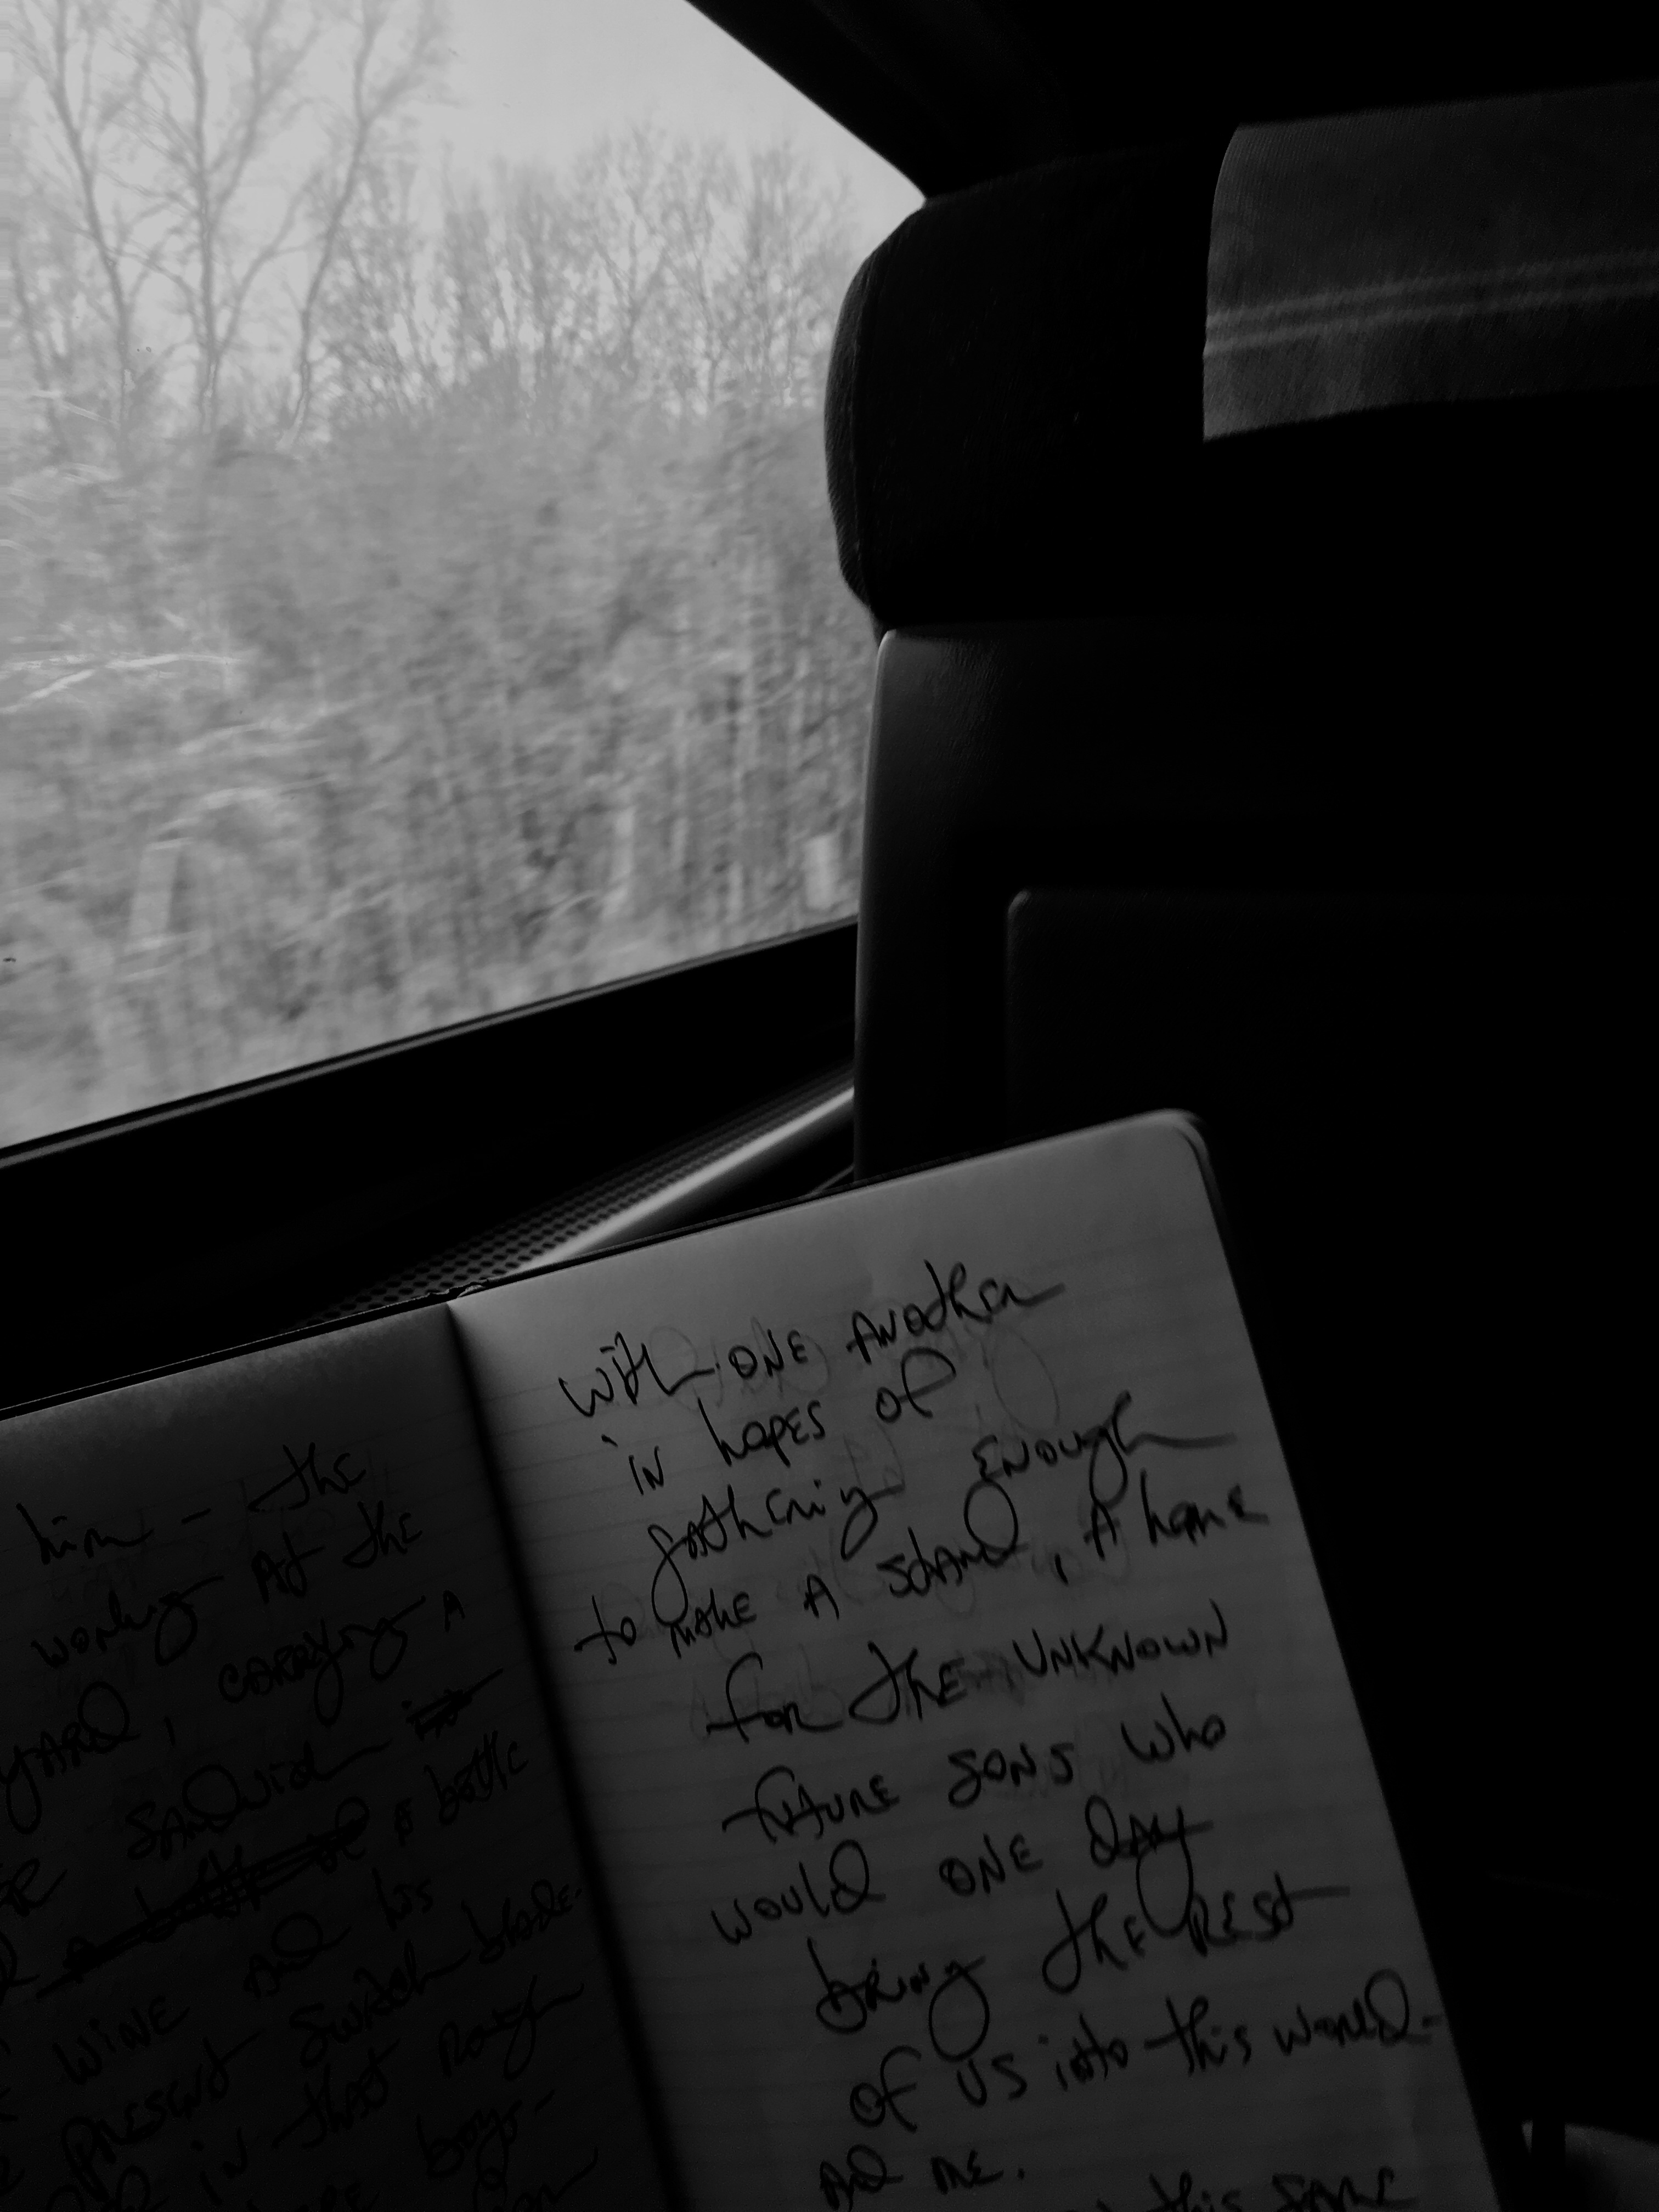 him – the
working At the
yARD, CARRYing A
SANdwich
A bottle
WiNE AND his
PRESENT Switch blade-
in that Rough
boys-
with ONE ANother
iN hopes of
gathering ENough
to make A stAND, A home
for the UNKNOWN
future SONS who
would ONE DAY
bring the REST
of US into this WORLD-
AND ME.
this SAME